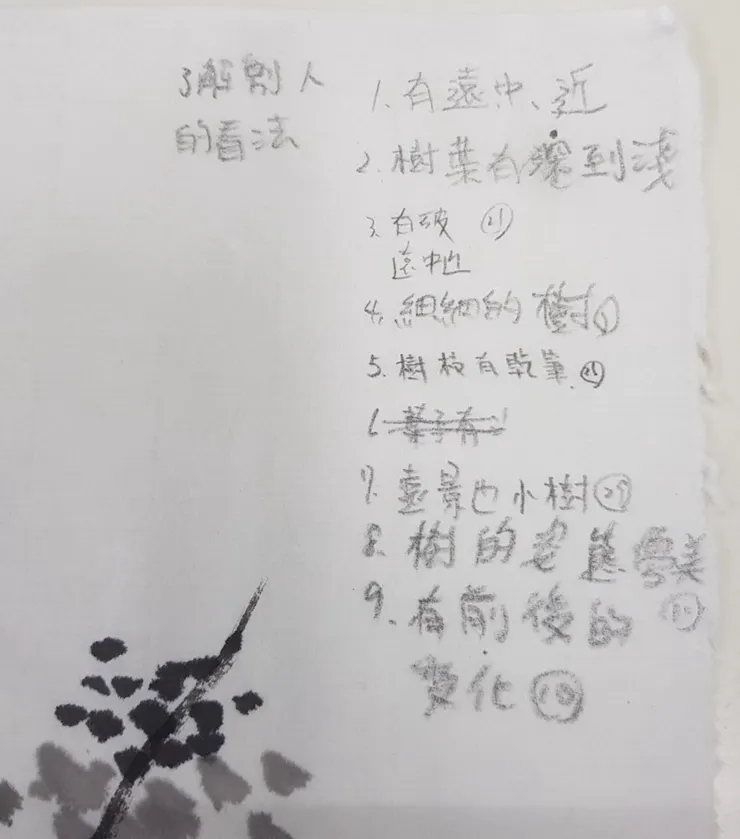 了解別人
的看法
1. 有遠中、近
2. 樹葉有深到淺
3. 有破 ㉑
遠中近
4. 細細的樹
5. 樹枝有乾筆
6. 葉子有
7. 遠景也小樹
8. 樹的姿態優美
9. 有前後的
變化